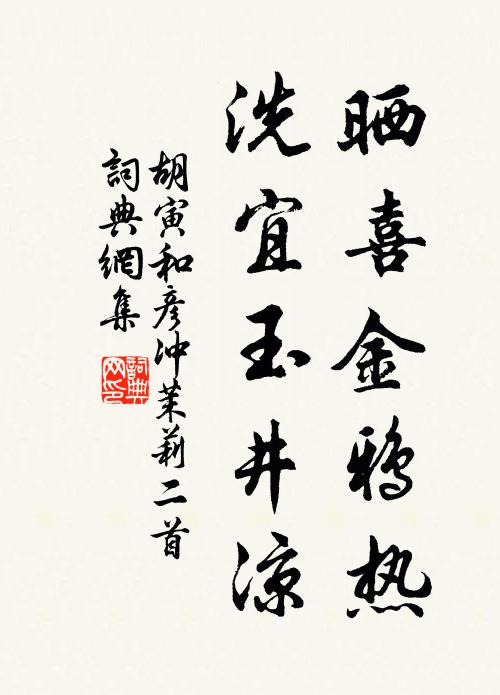 晒喜金鴉热
洗宜玉井凉
胡寅和彦冲茉莉二首
詞典網集
詞典
网印